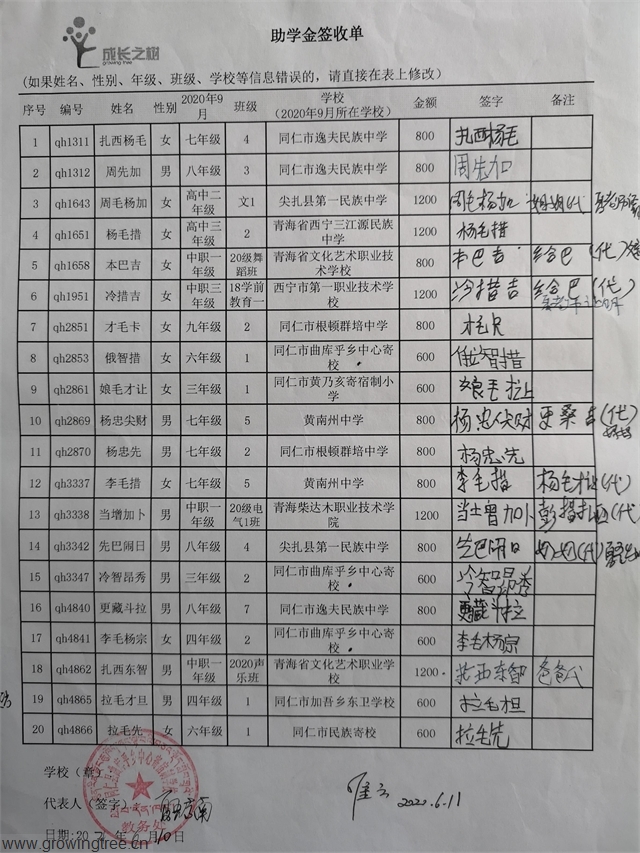 成长之树
growing tree
助学金签收单
(如果姓名、性别、年级、班级、学校等信息错误的，请直接在表上修改)
序号 编号 姓名 性别 2020年9月 班级 学校（2020年9月所在学校） 金额 签字 备注
1 qh1311 扎西杨毛 女 七年级 4 同仁市逸夫民族中学 800 扎西杨毛
2 qh1312 周先加 男 八年级 3 同仁市逸夫民族中学 800 周先加
3 qh1643 周毛杨加 女 高中二年级 文1 尖扎县第一民族中学 1200 周毛杨加 姐姐代
4 qh1651 杨毛措 女 高中三年级 2 青海省西宁三江源民族中学 1200 杨毛措
5 qh1658 本巴吉 女 中职一年级 20级舞蹈班 青海省文化艺术职业技术学校 800 本巴吉 给巴（代）
6 qh1951 冷措吉 女 中职三年级 18学前教育一 西宁市第一职业技术学校 1200 冷措吉 给巴（代）
7 qh2851 才毛卡 女 九年级 2 同仁市根顿群培中学 800 才毛卡
8 qh2853 俄智措 女 六年级 1 同仁市曲库乎乡中心寄校 600 俄智措
9 qh2861 娘毛才让 女 三年级 1 同仁市黄乃亥寄宿制小学 600 娘毛
10 qh2869 杨忠尖财 男 七年级 5 黄南州中学 800 杨忠尖财 更桑吉（代）
11 qh2870 杨忠先 男 二年级 2 同仁市根顿群培中学 800 杨忠先
12 qh3337 李毛措 女 七年级 5 黄南州中学 800 李毛措 杨毛（代）
13 qh3338 当增加卜 男 中职一年级 20级电气1班 青海柴达木职业技术学院 1200 当增加卜 彭措扎西（代）
14 qh3342 先巴闹日 男 八年级 4 尖扎县第一民族中学 800 先巴闹日 （代）
15 qh3347 冷智昂秀 男 三年级 2 同仁市曲库乎乡中心寄校 600 冷智昂秀
16 qh4840 更藏斗拉 男 八年级 7 同仁市逸夫民族中学 800 更藏斗拉
17 qh4841 李毛杨宗 女 四年级 2 同仁市曲库乎乡中心寄校 600 李毛杨宗
18 qh4862 扎西东智 男 中职一年级 2020声乐班 青海省文化艺术职业学校 1200 扎西东智 爸爸代
19 qh4865 拉毛才旦 男 四年级 1 同仁市加吾乡东卫学校 600 拉毛才旦
20 qh4866 拉毛先 女 六年级 1 同仁市民族寄校 600 拉毛先
学校（章）
代表人（签字）：
2021.6.11
教务处
日期:2021年6月10日
www.growingtree.cn